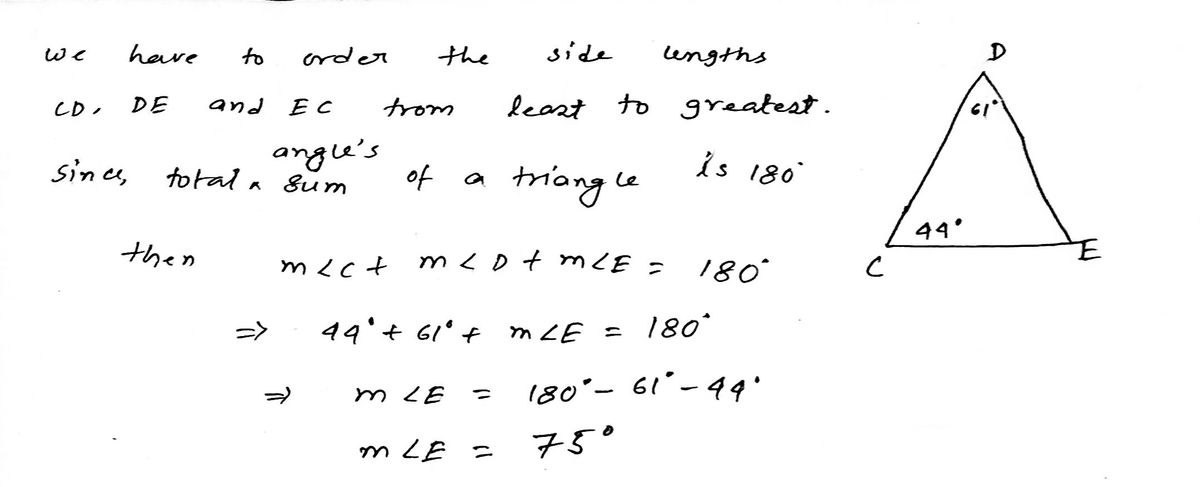 we have to order the side lengths
CD, DE and EC from least to greatest.
Since, total ^ angle's sum of a triangle is 180°
then m∠C + m∠D + m∠E = 180°
⇒ 44° + 61° + m∠E = 180°
⇒ m∠E = 180° - 61° - 44°
m∠E = 75°
D
61°
44°
C
E